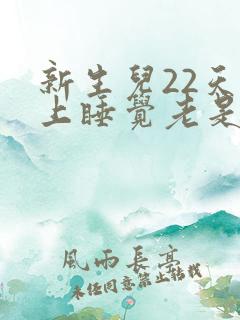 新生兒22天
上睡覺老是
風雨長亭
未经同意禁止转载